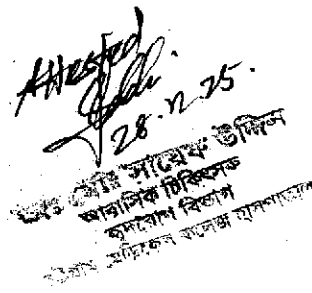 Attested
28.12.25.
সায়েফ উদ্দিন
আবাসিক চিকিৎসক
হৃদরোগ বিভাগ
মেডিকেল কলেজ হাসপাতাল